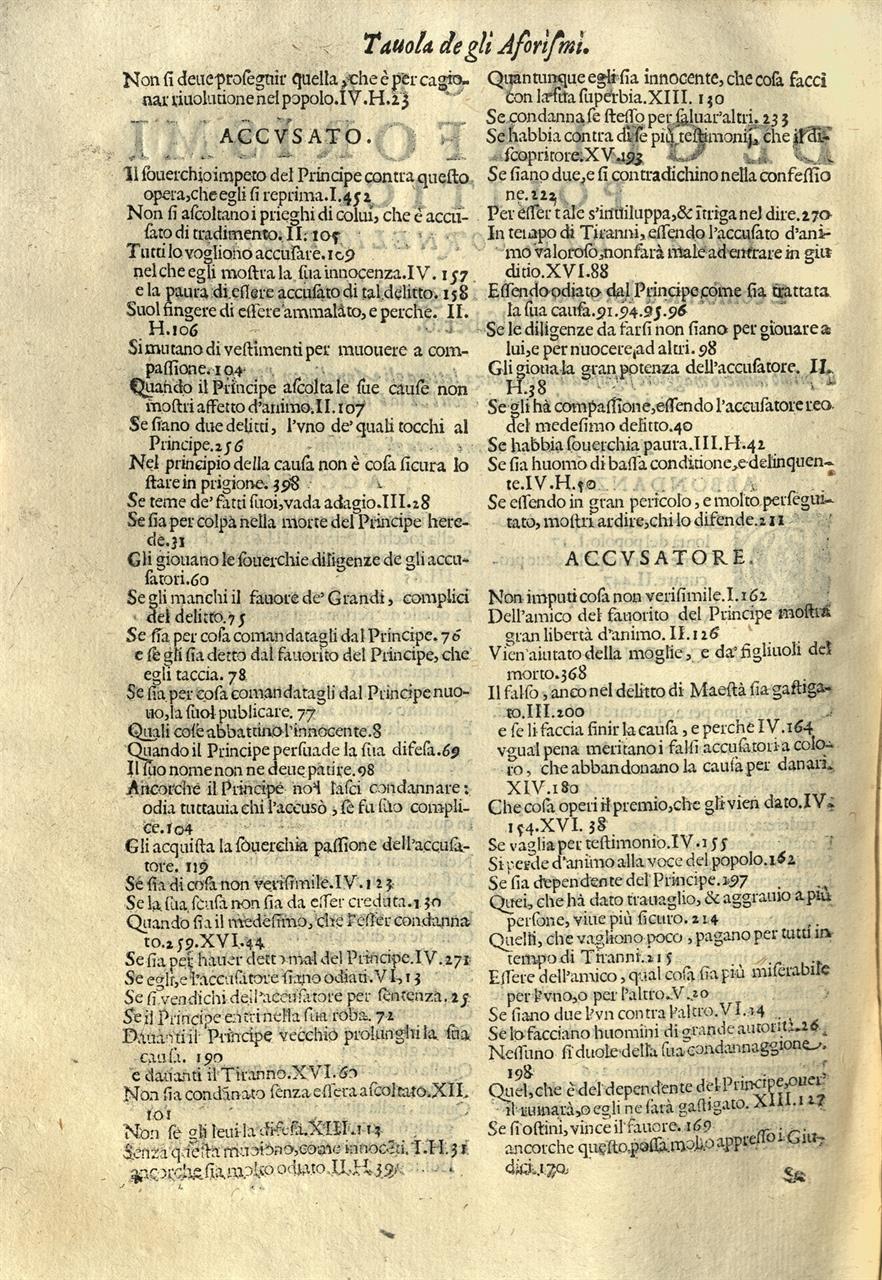 Tauola de gli Aforiſmi.
Non ſi deue proſeguir quella, che è per cagio-
nar riuolutione nel popolo. IV. H. 23
ACCVSATO.
Il ſouerchio impeto del Principe contra queſto
opera, che egli ſi reprima. I. 452
Non ſi aſcoltano i prieghi di colui, che è accu-
ſato di tradimento. II. 105
Tutti lo vogliono accuſare. 109
nel che egli moſtra la ſua innocenza. IV. 157
e la paura di eſſere accuſato di tal delitto. 158
Suol fingere di eſſere ammalato, e perche. II.
H. 106
Si mutano di veſtimenti per muouere a com-
paſſione. 104
Quando il Principe aſcolta le ſue cauſe non
moſtri affetto d'animo. II. 107
Se ſiano due delitti, l'vno de' quali tocchi al
Principe. 256
Nel principio della cauſa non è coſa ſicura lo
ſtare in prigione. 398
Se teme de' fatti ſuoi, vada adagio. III. 28
Se ſia per colpa nella morte del Principe here-
de. 31
Gli giouano le ſouerchie diligenze de gli accu-
ſatori. 60
Se gli manchi il fauore de' Grandi, complici
del delitto. 75
Se ſia per coſa comandatagli dal Principe. 76
e ſe gli ſia detto dal fauorito del Principe, che
egli taccia. 78
Se ſia per coſa comandatagli dal Principe nuo-
uo, la ſuol publicare. 77
Quali coſe abbattino l'innocente. 8
Quando il Principe perſuade la ſua difeſa. 69
Il ſuo nome non ne deue patire. 98
Ancorche il Principe nol laſci condannare:
odia tuttauia chi l'accusò, ſe fu ſuo compli-
ce. 104
Gli acquiſta la ſouerchia paſſione dell'accuſa-
tore. 119
Se ſia di coſa non veriſimile. IV. 123
Se la ſua ſcuſa non ſia da eſſer creduta. 130
Quando ſia il medeſimo, che l'eſſer condanna
to. 259. XVI. 44
Se ſia per hauer detto mal del Principe. IV. 271
Se egli, e l'accuſatore ſiano odiati. VI, 13
Se ſi vendichi dell'accuſatore per ſentenza. 25
Se il Principe entri nella ſua roba. 72
Dauanti il Principe vecchio prolunghi la ſua
cauſa. 190
e dauanti il Tiranno. XVI. 60
Non ſia condānato ſenza eſſer aſcoltato. XII.
101
Non ſe gli leui la difeſa. XIII. 113
Senza queſta muoiono, come innocēti. I. H. 31
ancorche ſia molto odiato. II. H 39
Quantunque egli ſia innocente, che coſa facci
con la ſua ſuperbia. XIII. 130
Se condanna ſe ſteſſo per ſaluar'altri. 233
Se habbia contra di ſe più teſtimonij, che il di-
ſcopritore. XV. 193
Se ſiano due, e ſi contradichino nella confeſſio
ne. 222
Per eſſer tale s'inuiluppa, & ītriga nel dire. 270
In tempo di Tiranni, eſſendo l'accuſato d'ani-
mo valoroſo, non farà male ad entrare in giu
ditio. XVI. 88
Eſſendo odiato dal Principe, come ſia trattata
la ſua cauſa. 91. 94. 95. 96
Se le diligenze da farſi non ſiano per giouare a
lui, e per nuocere ad altri. 98
Gli gioua la gran potenza dell'accuſatore. II.
H. 38
Se gli hà compaſſione, eſſendo l'accuſatore reo
del medeſimo delitto. 40
Se habbia ſouerchia paura. III. H. 42
Se ſia huomo di baſſa conditione, e delinquen-
te. IV. H. 50
Se eſſendo in gran pericolo, e molto perſegui-
tato, moſtri ardire, chi lo difende. 211
ACCVSATORE.
Non imputi coſa non veriſimile. I. 162
Dell'amico del fauorito del Principe moſtra
gran libertà d'animo. II. 126
Vien aiutato della moglie, e da' figliuoli del
morto. 368
Il falſo, anco nel delitto di Maeſtà ſia gaſtiga-
to. III. 200
e ſe li faccia finir la cauſa, e perche IV. 164
vgual pena meritano i falſi accuſatori a colo-
ro, che abbandonano la cauſa per danari.
XIV. 180
Che coſa operi il premio, che gli vien dato. IV.
154. XVI. 38
Se vaglia per teſtimonio. IV. 155
Si perde d'animo alla voce del popolo. 162
Se ſia dependente del Principe. 197
Quei, che hà dato trauaglio, & aggrauio a più
perſone, viue più ſicuro. 214
Quelli, che vagliono poco, pagano per tutti in
tempo di Tiranni. 215
Eſſere dell'amico, qual coſa ſia più miſerabile
per l'vno, o per l'altro. V. 20
Se ſiano due l'vn contra l'altro. VI. 14
Se lo facciano huomini di grande autorità. 26
Neſſuno ſi duole della ſua condannaggione.
198
Quel, che è del dependente del Principe, ouer
il ruinarà, o egli ne ſarà gaſtigato. XIII. 127
Se ſi oſtini, vince il fauore. 169
ancorche queſto poſſa molto appreſſo i Giu-
dici. 170
Se